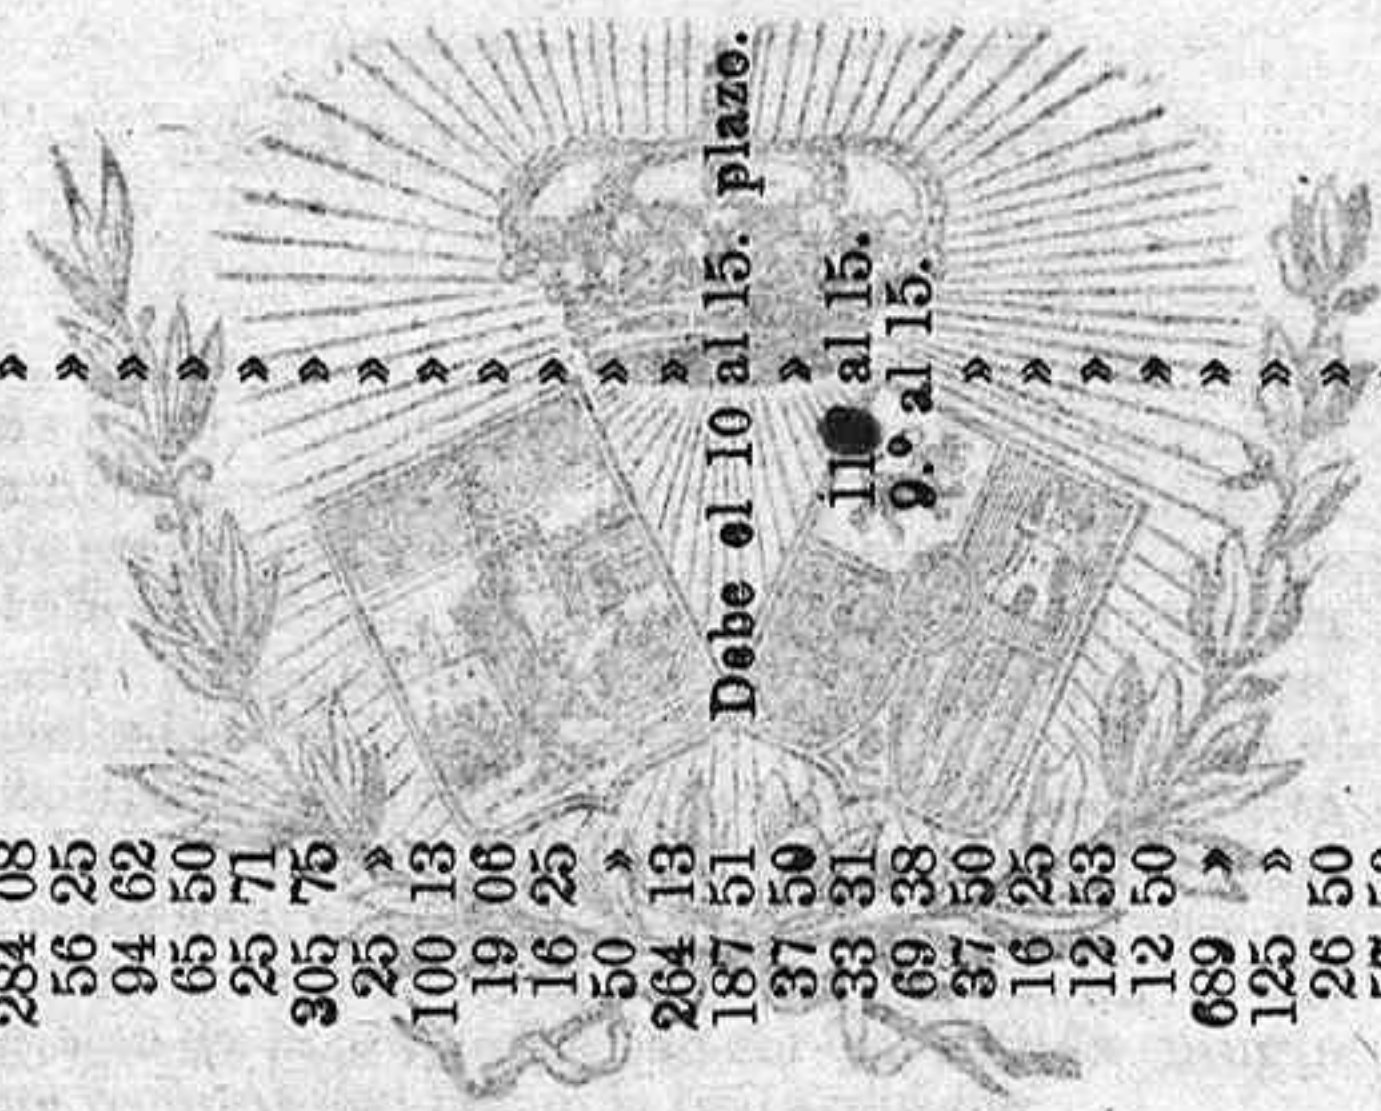 284 08 »
56 25 »
94 62 »
65 50 »
25 71 »
305 75 »
25 » »
100 13 »
19 06 »
16 25 »
50 » »
264 13 »
187 51 Debe el 10 al 15. plazo.
37 50 »
33 31 11 al 15.
69 38 9.º al 15.
37 50 »
16 25 »
12 53 »
12 50 »
689 » »
125 » »
26 50 »